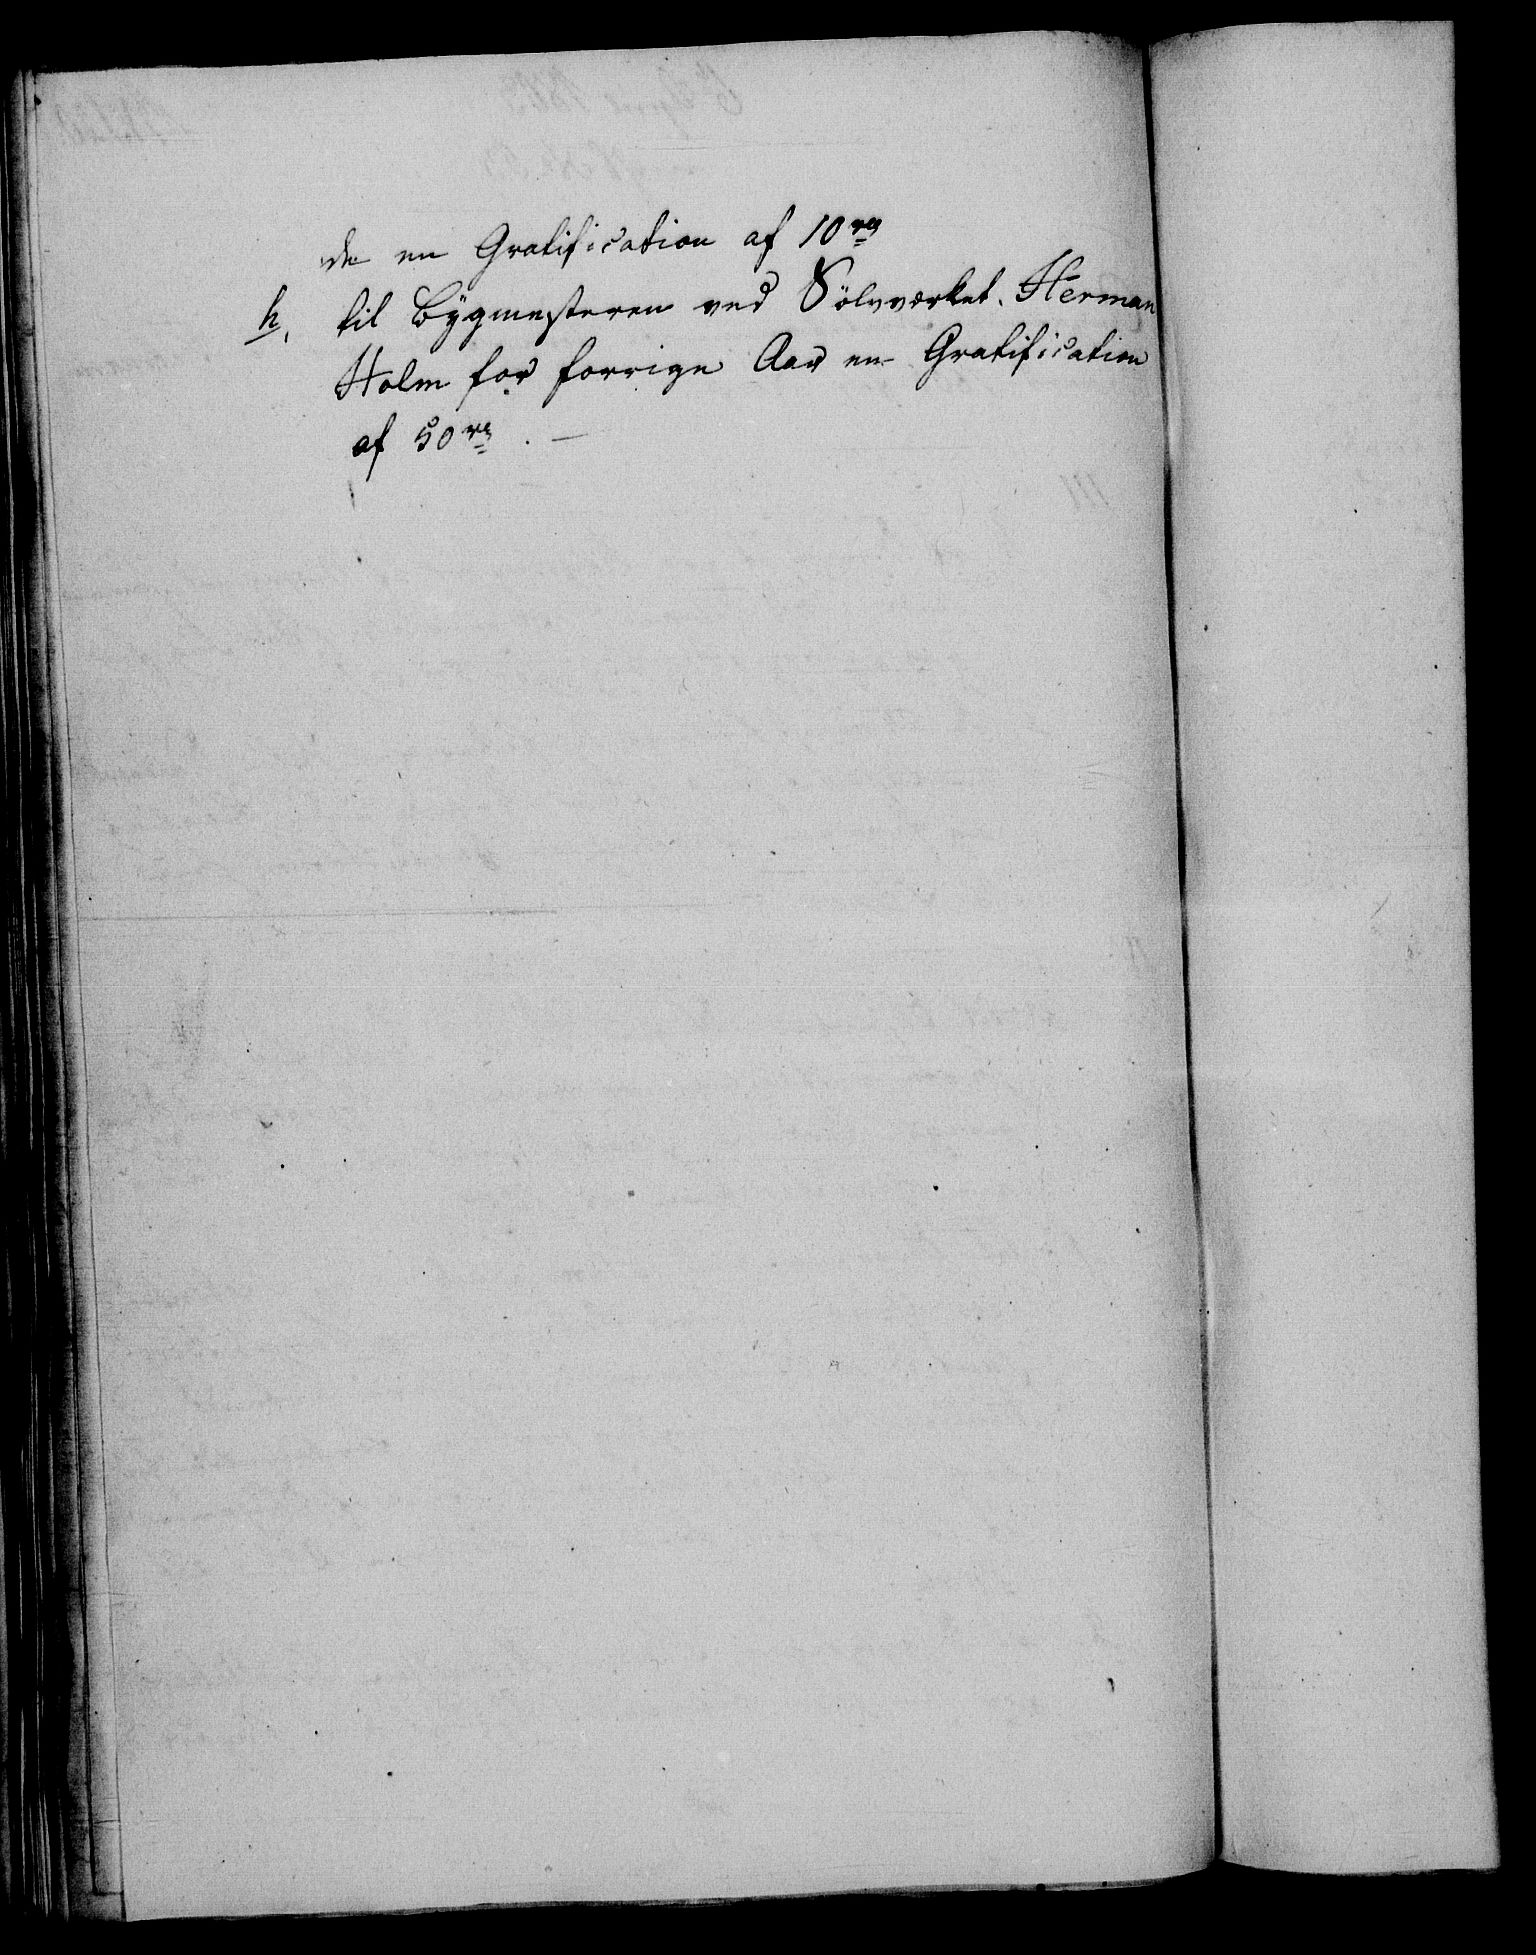 de en Gratification af 10 rd
h, til Bÿgmesteren ved Sölvværket, Herman
Holm for forrige Aar en Gratification
af 50 rd. —